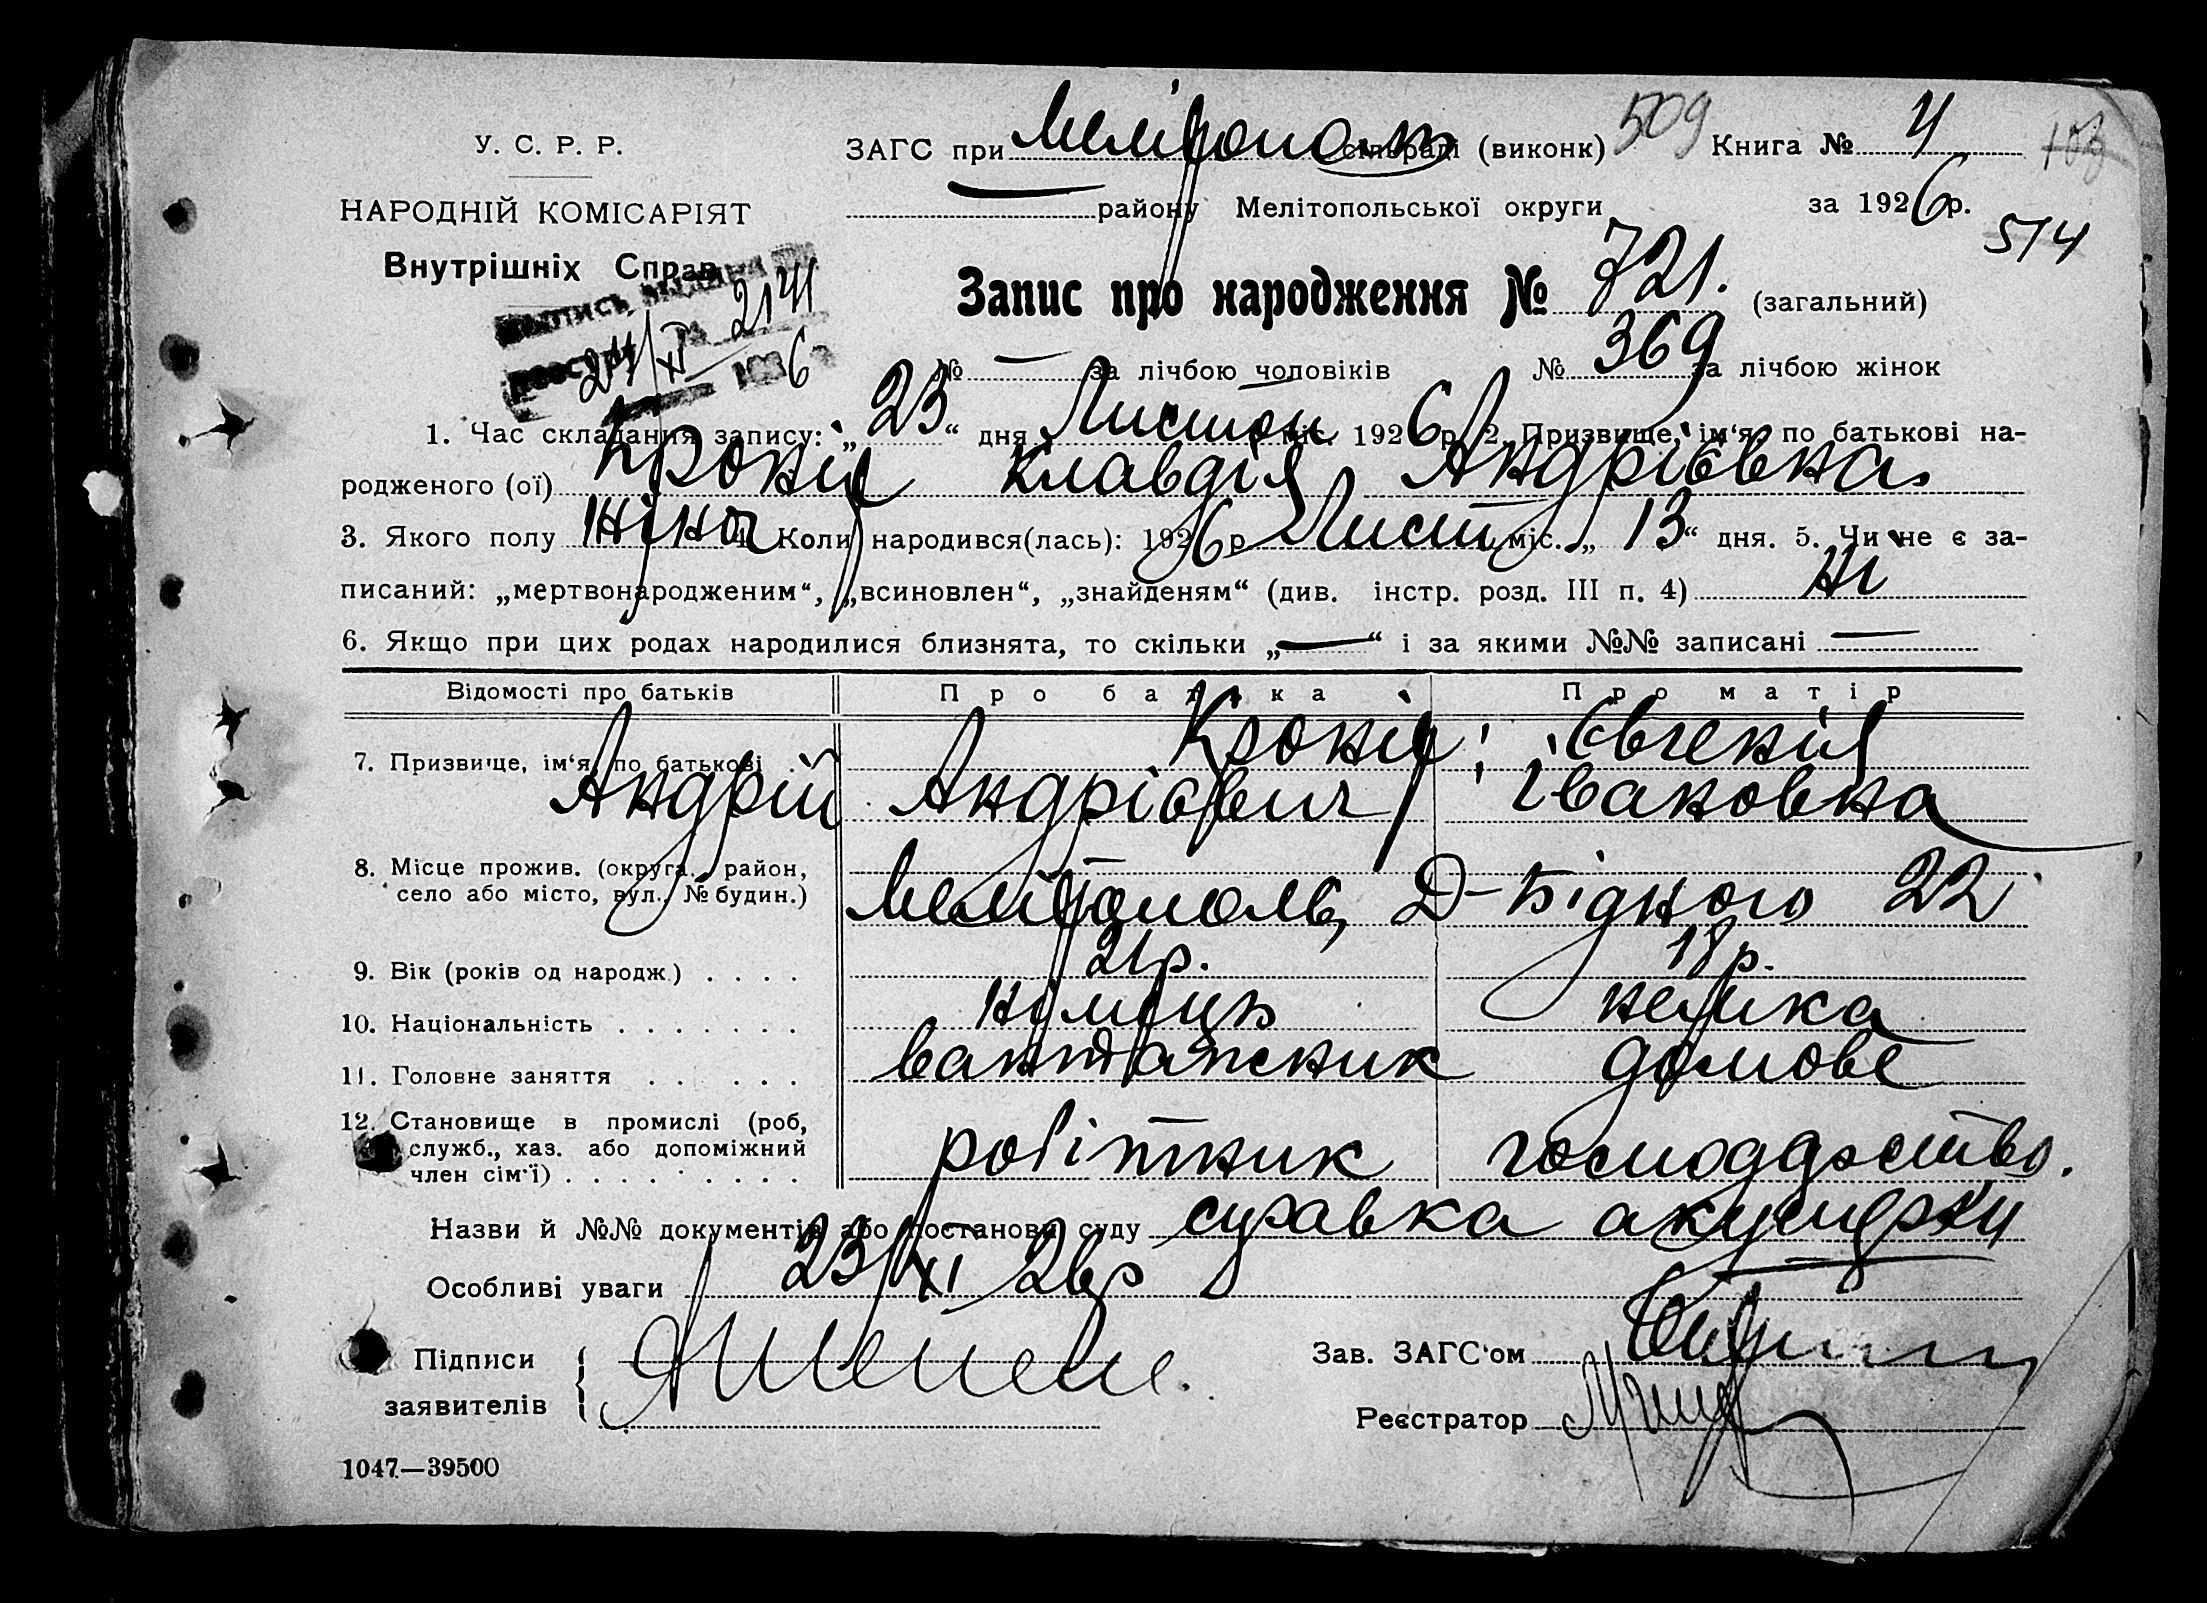 У. С. Р. Р.
НАРОДНІЙ КОМІСАРІЯТ
Внутрішніх Справ
ЗАГС при Мелітополь сільраді (виконк) 509 Книга № 4
району Мелітопольської округи за 1926 р.
514
Запис про народження № 721. (загальний)
№ — за лічбою чоловіків № 369 за лічбою жінок
24/XI 2141
6
1. Час складання запису: „23“ дня Листоп міс. 1926 р. 2. Призвище, ім‘я, по батькові на-
родженого (ої) Кроніс Клавдія Андріївна
3. Якого полу жіноч 4. Коли народився(лась): 1926 р. Листоп міс. „13“ дня. 5. Чи не є за-
писаний: „мертвонародженим“, „всиновлен“, „знайденям“ (див. інстр. розд. III п. 4) Ні
6. Якщо при цих родах народилися близнята, то скільки „—“ і за якими №№ записані —
Відомості про батьків Про батька Про матір
7. Призвище, ім‘я, по батькові Євгенія
Андрій Андрієвич Івановна
8. Місце прожив. (округа, район,
село або місто, вул., № будин.) Мелітополь, Д-Бідного 22
9. Вік (років од народж.) . . . . 21р. 18р.
10. Національність . . . . . . . німець немка
11. Головне заняття . . . . . . вантажник домове
12. Становище в промислі (роб,
служб., хаз. або допоміжний
член сім‘ї) . . . . . . . . . робітник господарство.
Назви й №№ документів або постанови суду справка акушерки
Особливі уваги 23/XI 26р
Підписи
заявителів
Зав. ЗАГС‘ом
Реєстратор
1047—39500